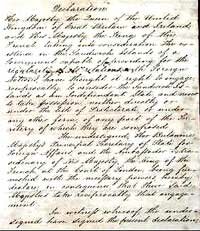 Declaration
Her Majesty the Queen of the United
Kingdom of Great Britain and Ireland,
and His Majesty the King of the
French, taking into consideration the ex-
istence in the Sandwich Islands of a
Government capable of providing for the
regularity of its relations with foreign
Nations, have thought it right to engage
reciprocally, to consider the Sandwich Is-
lands as an Independent State, and never
to take possession, neither directly or
under the title of Protectorate, or under
any other form, of any part of the Ter-
ritory of which they are composed.
The undersigned, Her Britannic
Majesty's Principal Secretary of State for
Foreign Affairs and the Ambassador Extra-
ordinary of His Majesty the King of the
French, at the Court of London, being fur-
nished with the necessary powers, hereby
declare, in consequence, that their said
Majesties take reciprocally that engage-
ment.
In witness whereof the under-
signed have signed the present declaration